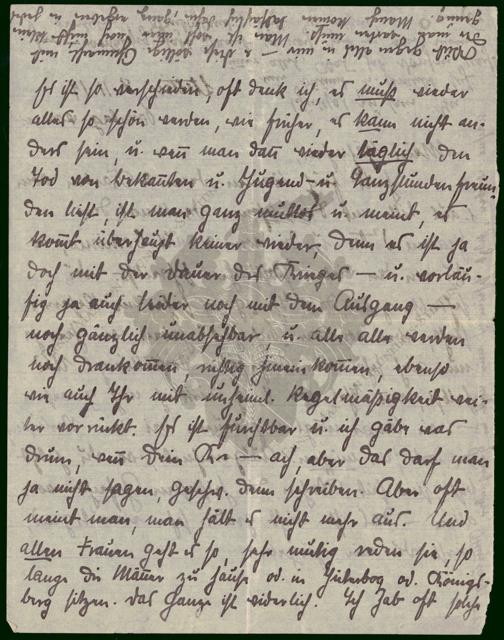 Es ist so verschieden, oft denk ich, es muß wieder
alles so schön werden, wie früher, es kann nicht an-
ders sein, u. weñ man dañ wieder täglich den
Tod von bekañten u. Jugend- u. Tanzstundenfreun-
den liest, ist man ganz mutlos u. meint, es
kom̄t überhaupt keiner wieder, denn es ist ja
doch mit der Dauer des Krieges — u. vorläu-
fig ja auch leider noch mit dem Ausgang —
noch gänzlich unabsehbar, u. alle alle werden
noch drankom̄en, ruhig hineinkom̄en, ebenso
wie auch Ihr mit unheiml. Regelmäßigkeit wei-
ter vorrückt. Es ist furchtbar u. ich gäbe was
drum, weñ Dein — ach, aber das darf man
ja nicht sagen, geschw. denn schreiben. Aber oft
meint man, man hält es nicht mehr aus. Und
allen Frauen geht es so, sehr mutig reden sie, so
lange die Mäñer zu Hause od. in Jüterbog od. Königs-
berg sitzen. Das Ganze ist widerlich. Ich hab oft solche